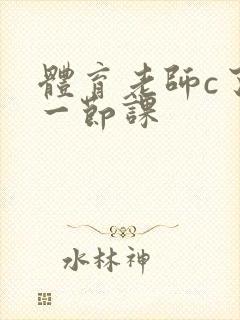 體育老師c了
一節課
水林神